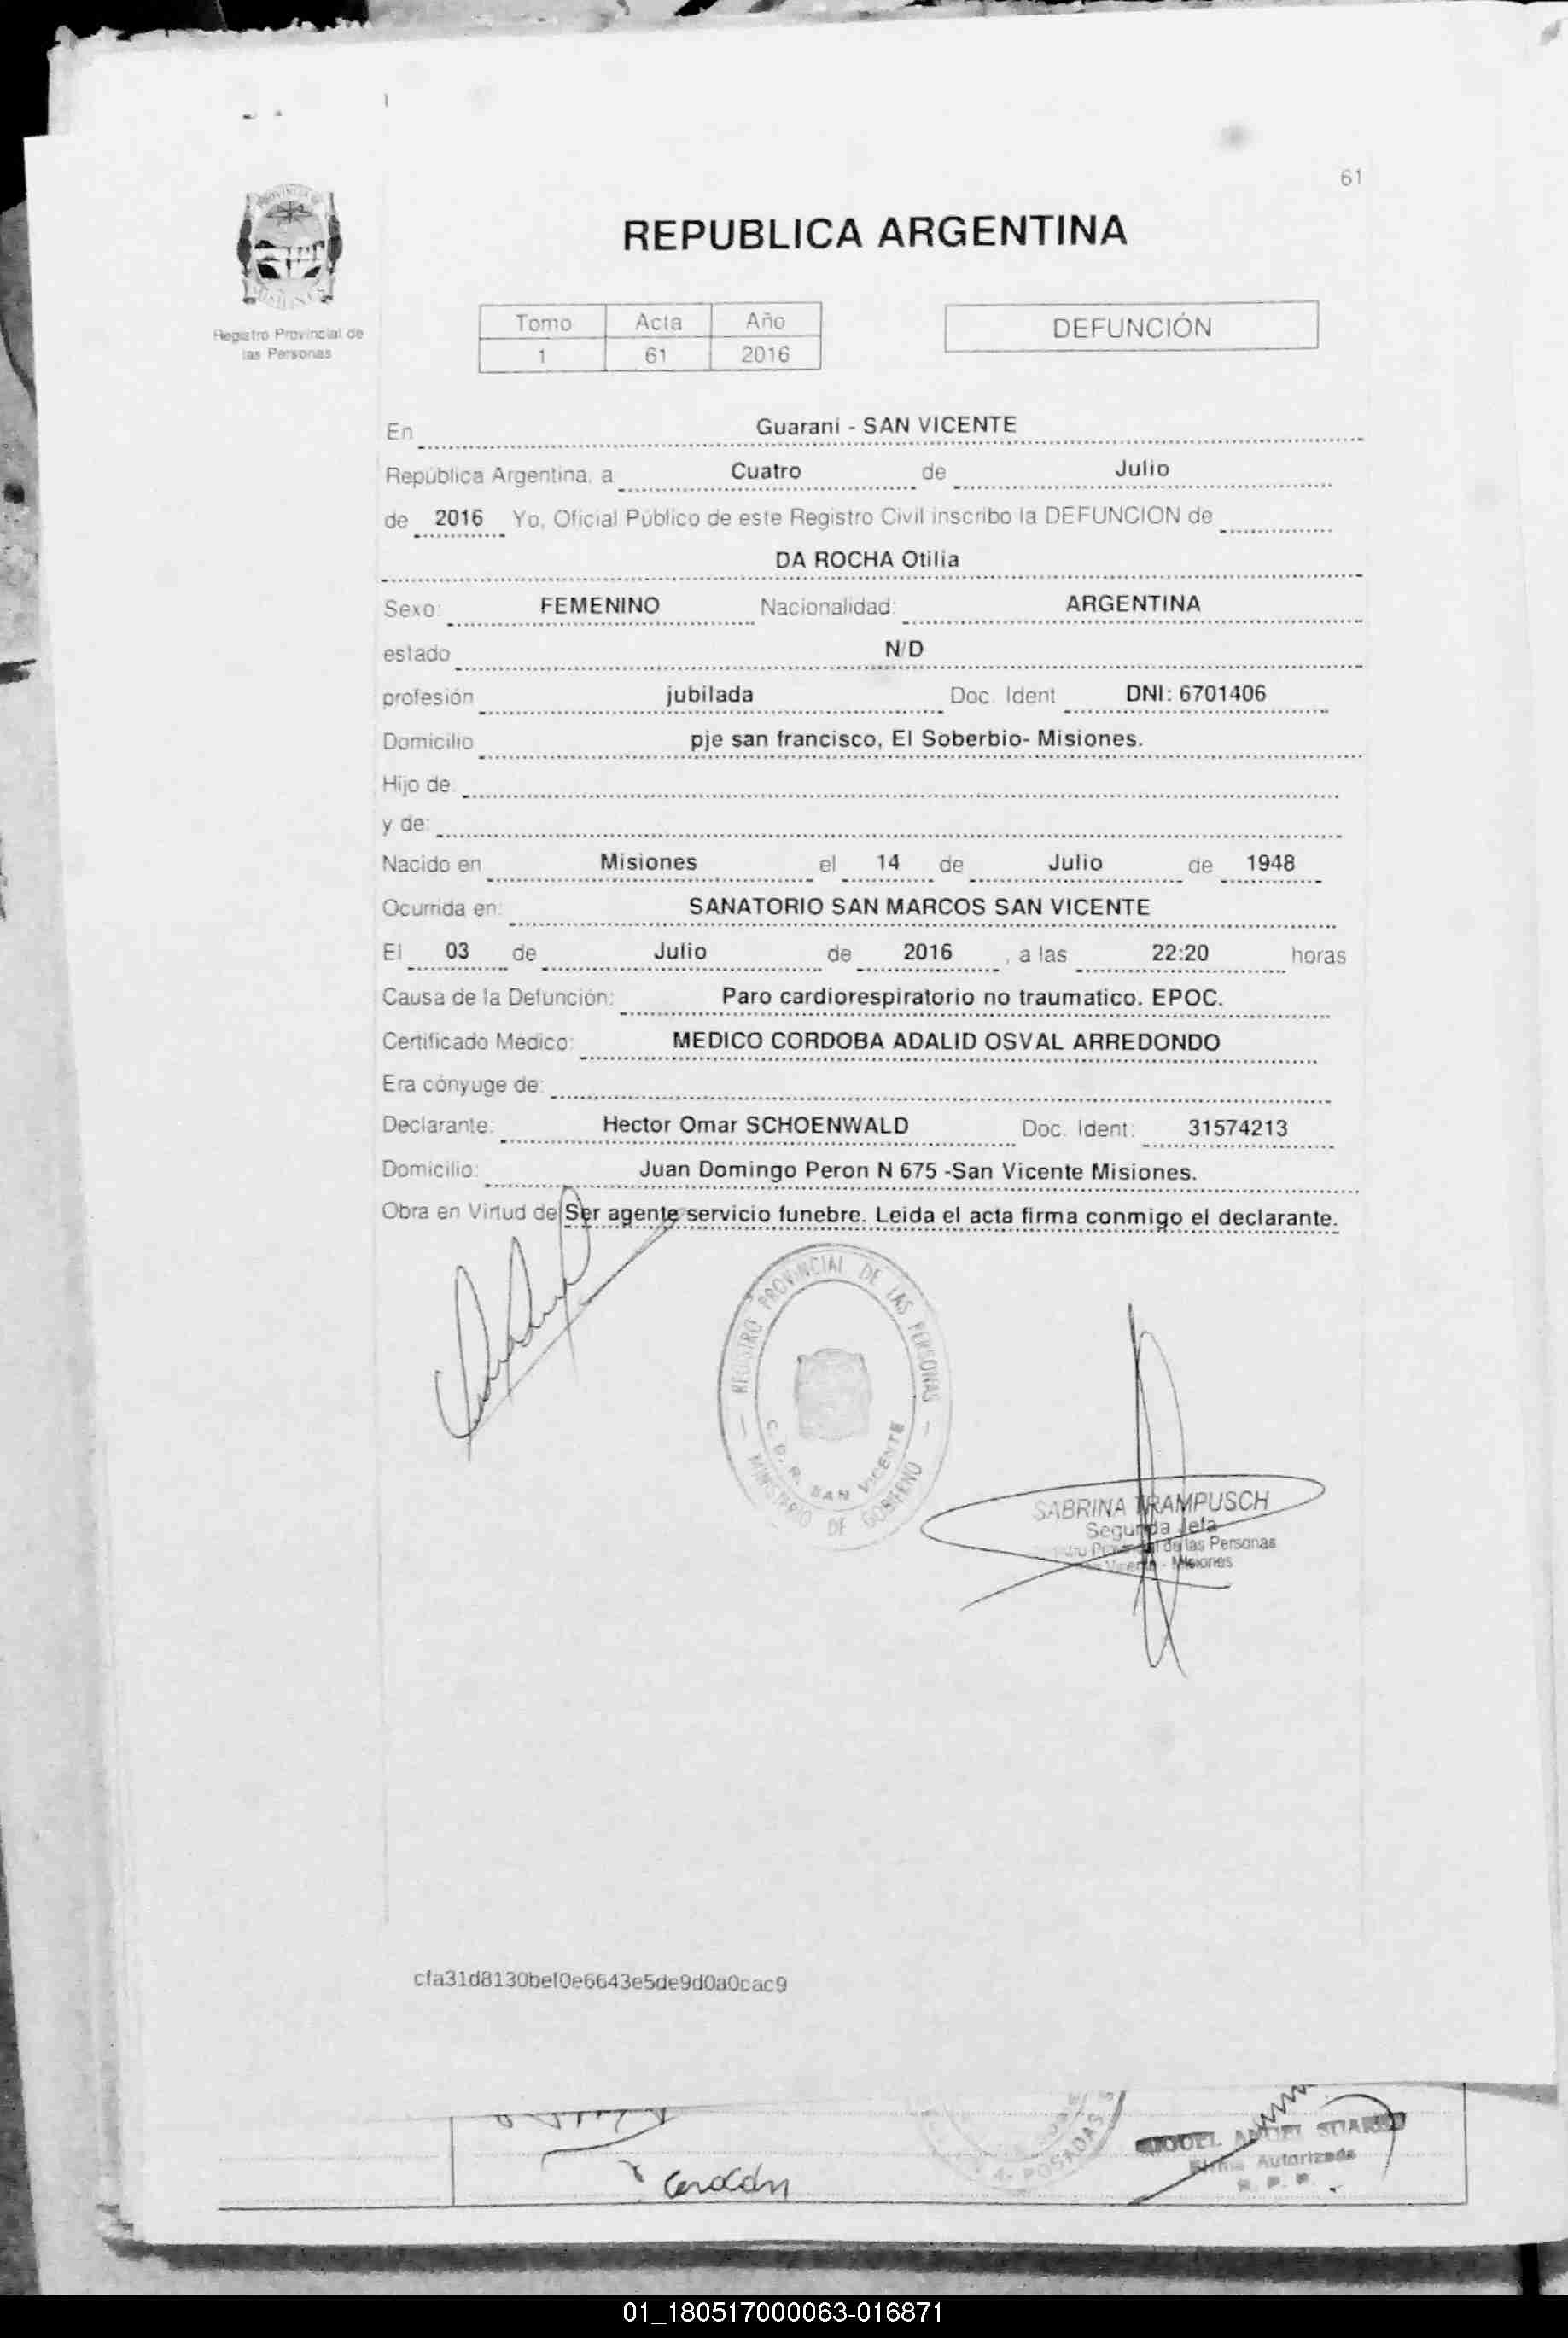 61
PROVINCIA DE
MISIONES
Registro Provincial de
las Personas
REPUBLICA ARGENTINA
Tomo Acta Año
1 61 2016
DEFUNCIÓN
En Guaraní - SAN VICENTE
República Argentina, a Cuatro de Julio
de 2016 Yo, Oficial Público de este Registro Civil inscribo la DEFUNCION de
DA ROCHA Otilia
Sexo: FEMENINO Nacionalidad: ARGENTINA
estado N/D
profesión jubilada Doc. Ident DNI: 6701406
Domicilio pje san francisco, El Soberbio- Misiones.
Hijo de
y de:
Nacido en Misiones el 14 de Julio de 1948
Ocurrida en: SANATORIO SAN MARCOS SAN VICENTE
El 03 de Julio de 2016 , a las 22:20 horas
Causa de la Defunción: Paro cardiorespiratorio no traumatico. EPOC.
Certificado Médico: MEDICO CORDOBA ADALID OSVAL ARREDONDO
Era cónyuge de:
Declarante: Hector Omar SCHOENWALD Doc. Ident: 31574213
Domicilio: Juan Domingo Peron N 675 -San Vicente Misiones.
Obra en Virtud de Ser agente servicio funebre. Leida el acta firma conmigo el declarante.
REGISTRO PROVINCIAL DE LAS PERSONAS
C. D. R. SAN VICENTE
MINISTERIO DE GOBIERNO
SABRINA TRAMPUSCH
Segunda Jefa
Provincial de las Personas
Vicente - Misiones
cfa31d8130bef0e6643e5de9d0a0cac9
POSADAS
MIGUEL ANGEL SUAREZ
Firma Autorizada
R. P. P.
01_180517000063-016871